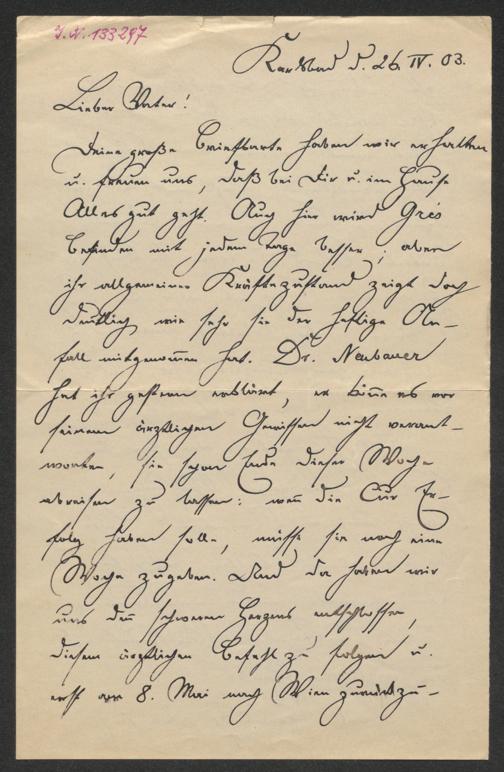 I. N. 133297
Karlsbad d. 26. IV. 03.
Lieber Vater!
Deine große Briefkarte haben wir erhalten
u. freuen uns, daß bei Dir u. im Hause
Alles gut geht. Auch hier wird Gre's
Befinden mit jedem Tage besser; aber
ihr allgemeiner Kräftezustand zeigt doch
deutlich wie sehr sie der heftige An-
fall mitgenom̄en hat. Dr. Neubauer
hat ihr gestern erklärt, er kön̄e es vor
seinem ärztlichen Gewissen nicht verant-
worten, sie schon Ende dieser Woche
abreisen zu lassen: wen̄ die Cur Er-
folg haben solle, müsse sie noch eine
Woche zugeben. Und da haben wir
uns den̄ schweren Herzens entschlossen,
diesem ärztlichen Befehl zu folgen u.
erst am 8. Mai nach Wien zurückzu-